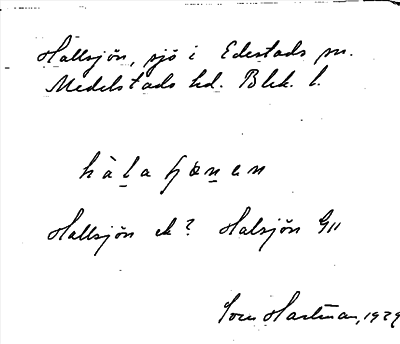 Hallsjön, sjö i Edestads sn.
Medelstads hd. Blek. l.
hàla ʃønen
Hallsjön ek? Halsjön G11
Tore Hartman, 1929